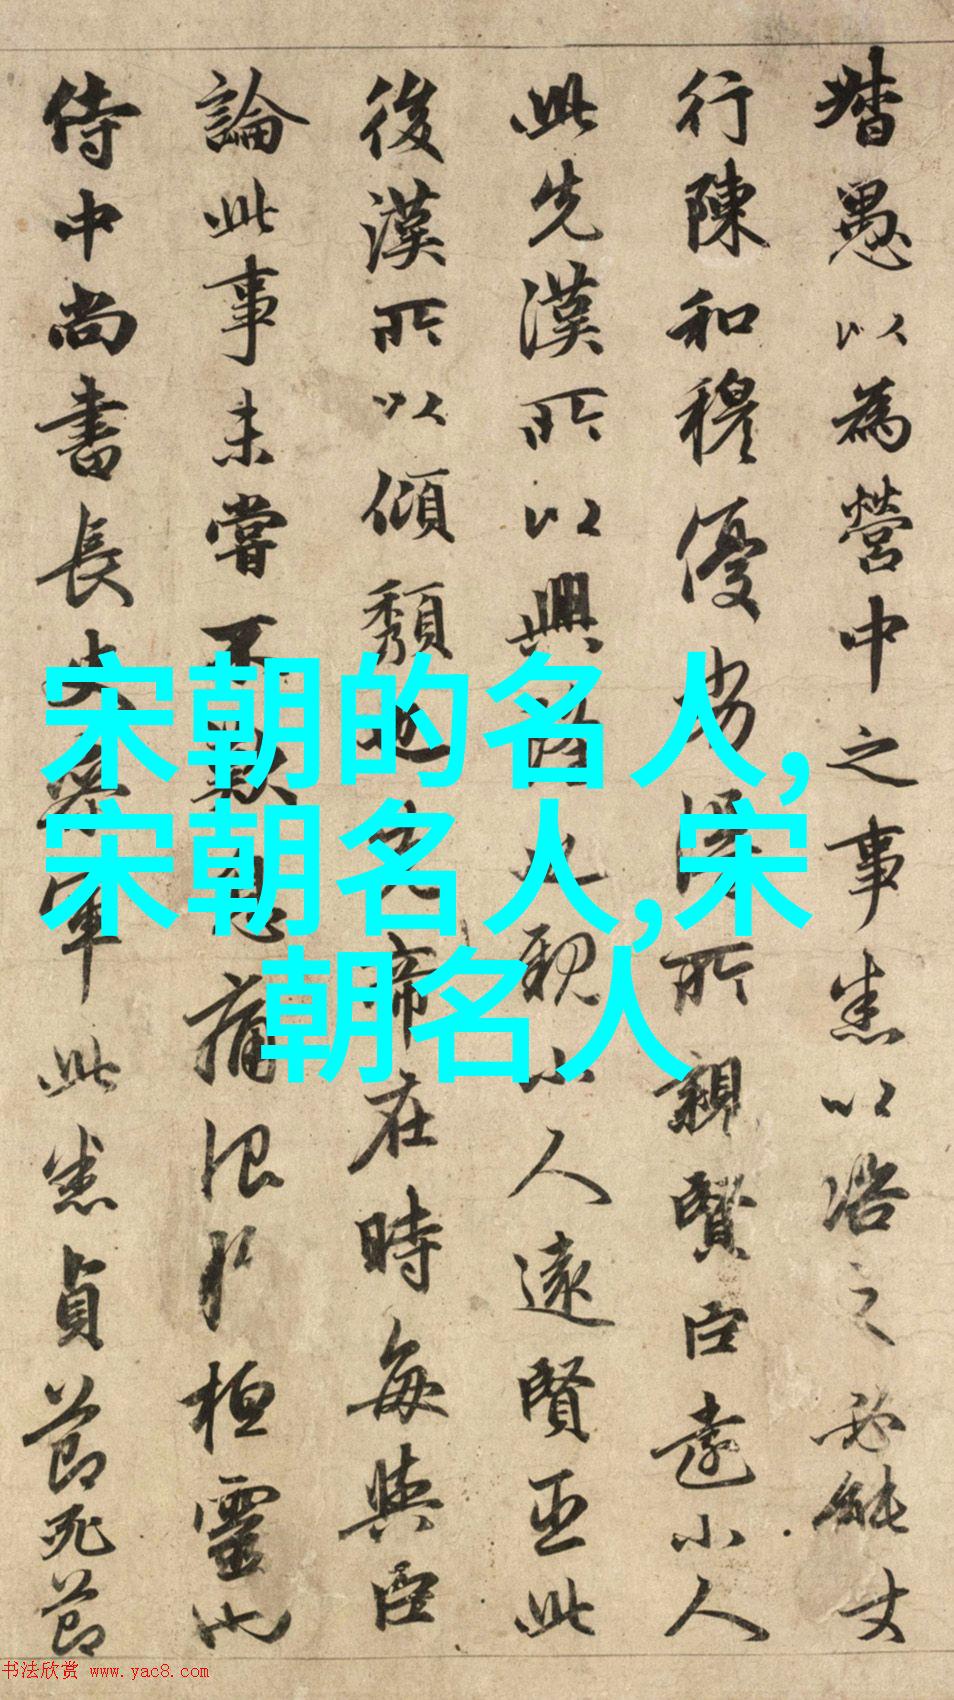 督愚以為營中之事悉以咨之必能
行陳和穆優劣得所親賢臣遠小人
此先漢所以興隆也親小人遠賢臣此
後漢所以傾頹也先帝在時每與臣
論此事未嘗不歎息痛恨於桓靈也
侍中尚書長史參軍此悉貞節死節
宋朝的名人,
宋朝名人,宋
朝名人
书法欣赏 www.yac8.com